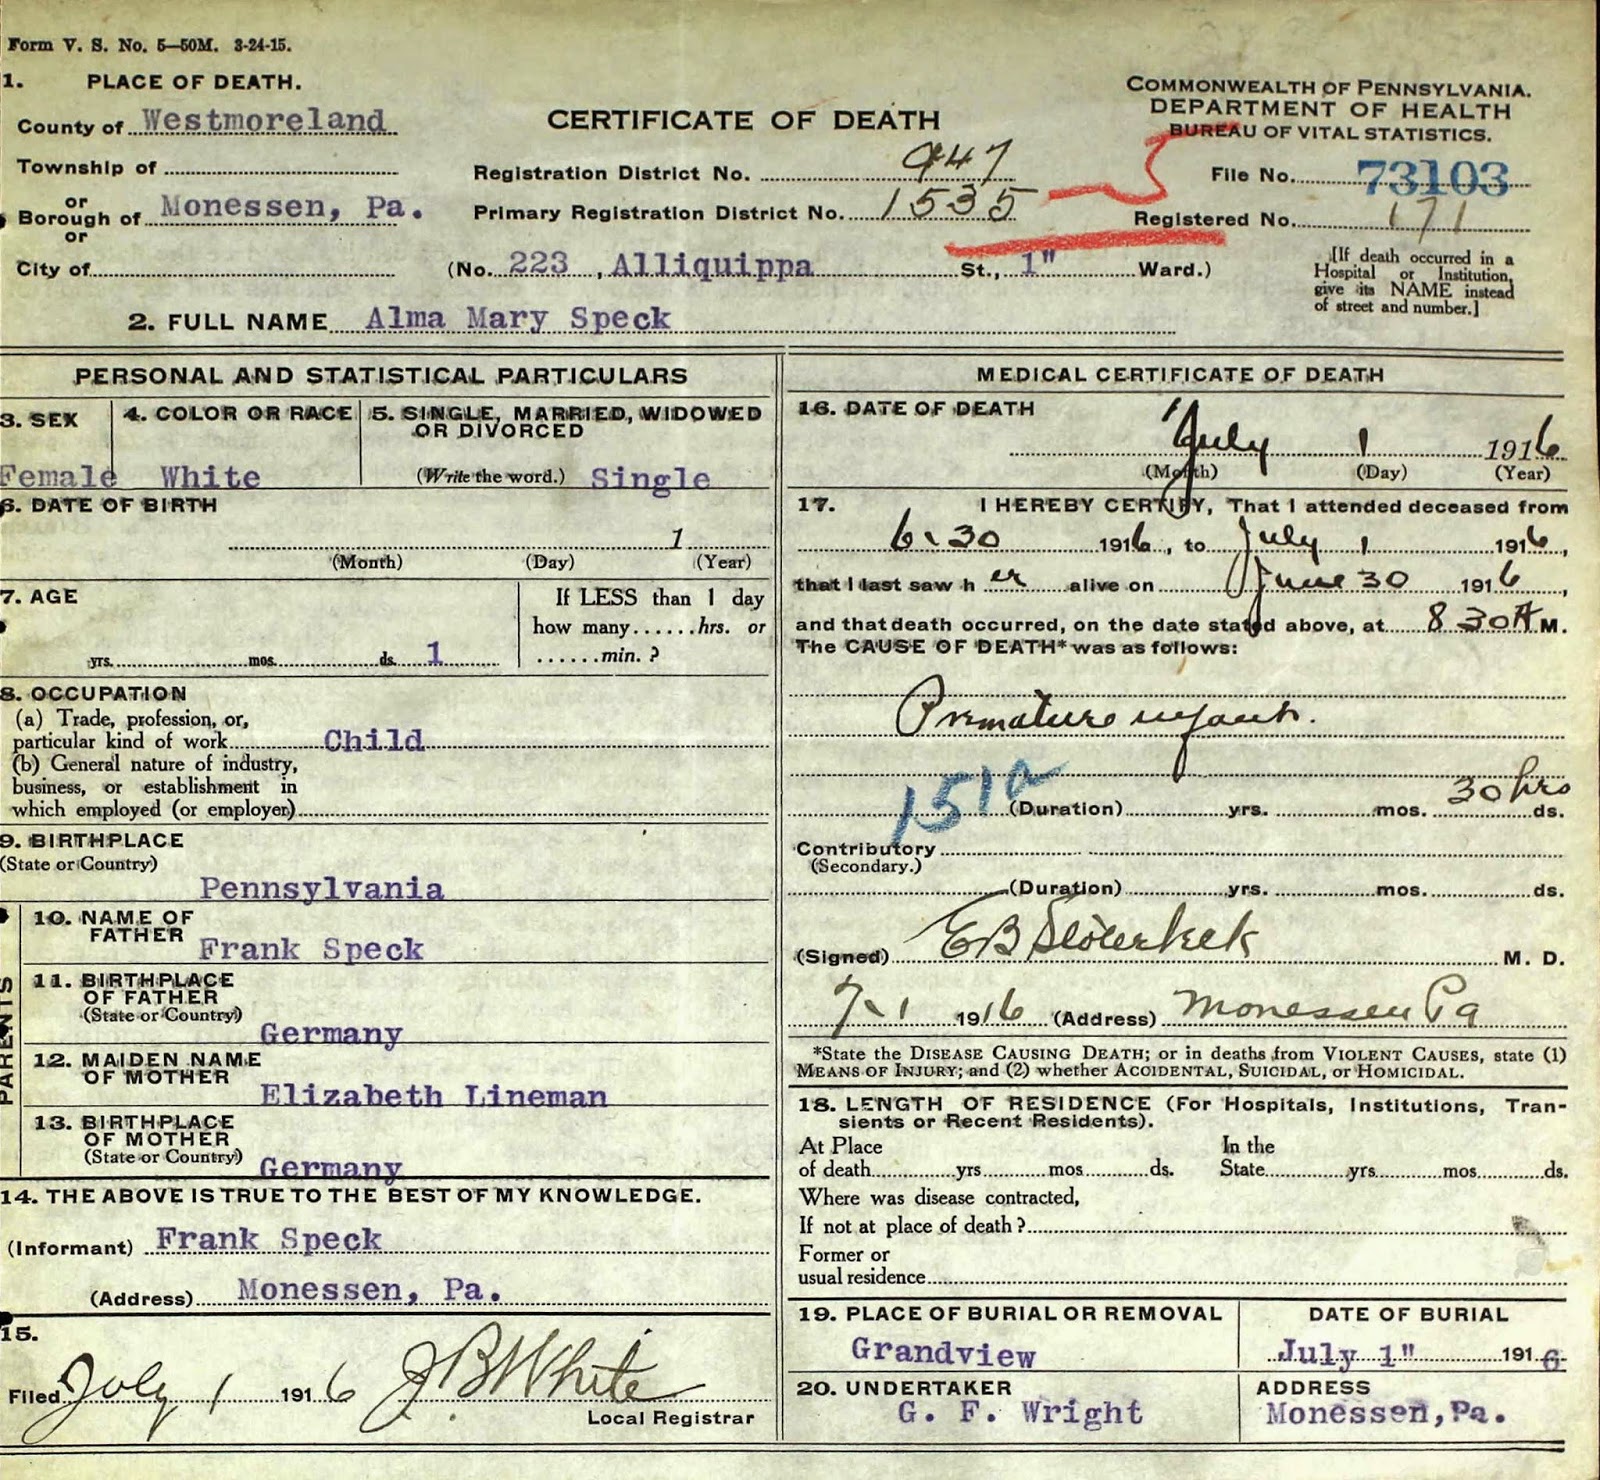 Form V. S. No. 5—50M. 3-24-15.
1. PLACE OF DEATH.
County of Westmoreland
Township of
or
Borough of Monessen, Pa.
or
City of
CERTIFICATE OF DEATH
Registration District No. 947
Primary Registration District No. 1535
(No. 223, Alliquippa St., 1" Ward.)
COMMONWEALTH OF PENNSYLVANIA.
DEPARTMENT OF HEALTH
BUREAU OF VITAL STATISTICS.
File No. 73103
Registered No. 171
[If death occurred in a
Hospital or Institution,
give its NAME instead
of street and number.]
2. FULL NAME Alma Mary Speck
PERSONAL AND STATISTICAL PARTICULARS
3. SEX
Female
4. COLOR OR RACE
White
5. SINGLE, MARRIED, WIDOWED
OR DIVORCED
(Write the word.) Single
6. DATE OF BIRTH
1
(Month) (Day) (Year)
7. AGE
yrs. mos. ds. 1
If LESS than 1 day
how many......hrs. or
......min.?
8. OCCUPATION
(a) Trade, profession, or,
particular kind of work Child
(b) General nature of industry,
business, or establishment in
which employed (or employer)
9. BIRTHPLACE
(State or Country)
Pennsylvania
PARENTS
10. NAME OF
FATHER Frank Speck
11. BIRTHPLACE
OF FATHER
(State or Country)
Germany
12. MAIDEN NAME
OF MOTHER
Elizabeth Lineman
13. BIRTHPLACE
OF MOTHER
(State or Country)
Germany
14. THE ABOVE IS TRUE TO THE BEST OF MY KNOWLEDGE.
(Informant) Frank Speck
(Address) Monessen, Pa.
15.
Filed July 1 1916 J B White
Local Registrar
MEDICAL CERTIFICATE OF DEATH
16. DATE OF DEATH
July 1 1916
(Month) (Day) (Year)
17. I HEREBY CERTIFY, That I attended deceased from
6-30 1916, to July 1 1916,
that I last saw her alive on June 30 1916,
and that death occurred, on the date stated above, at 8 30 A M.
The CAUSE OF DEATH* was as follows:
Premature infant.
151a
(Duration) yrs. mos. 30 hrs ds.
Contributory
(Secondary.)
(Duration) yrs. mos. ds.
(Signed) E B M. D.
7-1 1916 (Address) Monessen Pa
*State the DISEASE CAUSING DEATH; or in deaths from VIOLENT CAUSES, state (1)
MEANS OF INJURY; and (2) whether ACCIDENTAL, SUICIDAL, or HOMICIDAL.
18. LENGTH OF RESIDENCE (For Hospitals, Institutions, Tran-
sients or Recent Residents).
At Place
of death yrs mos ds.
In the
State yrs mos ds.
Where was disease contracted,
If not at place of death?
Former or
usual residence
19. PLACE OF BURIAL OR REMOVAL
Grandview
DATE OF BURIAL
July 1" 1916
20. UNDERTAKER
G. F. Wright
ADDRESS
Monessen, Pa.